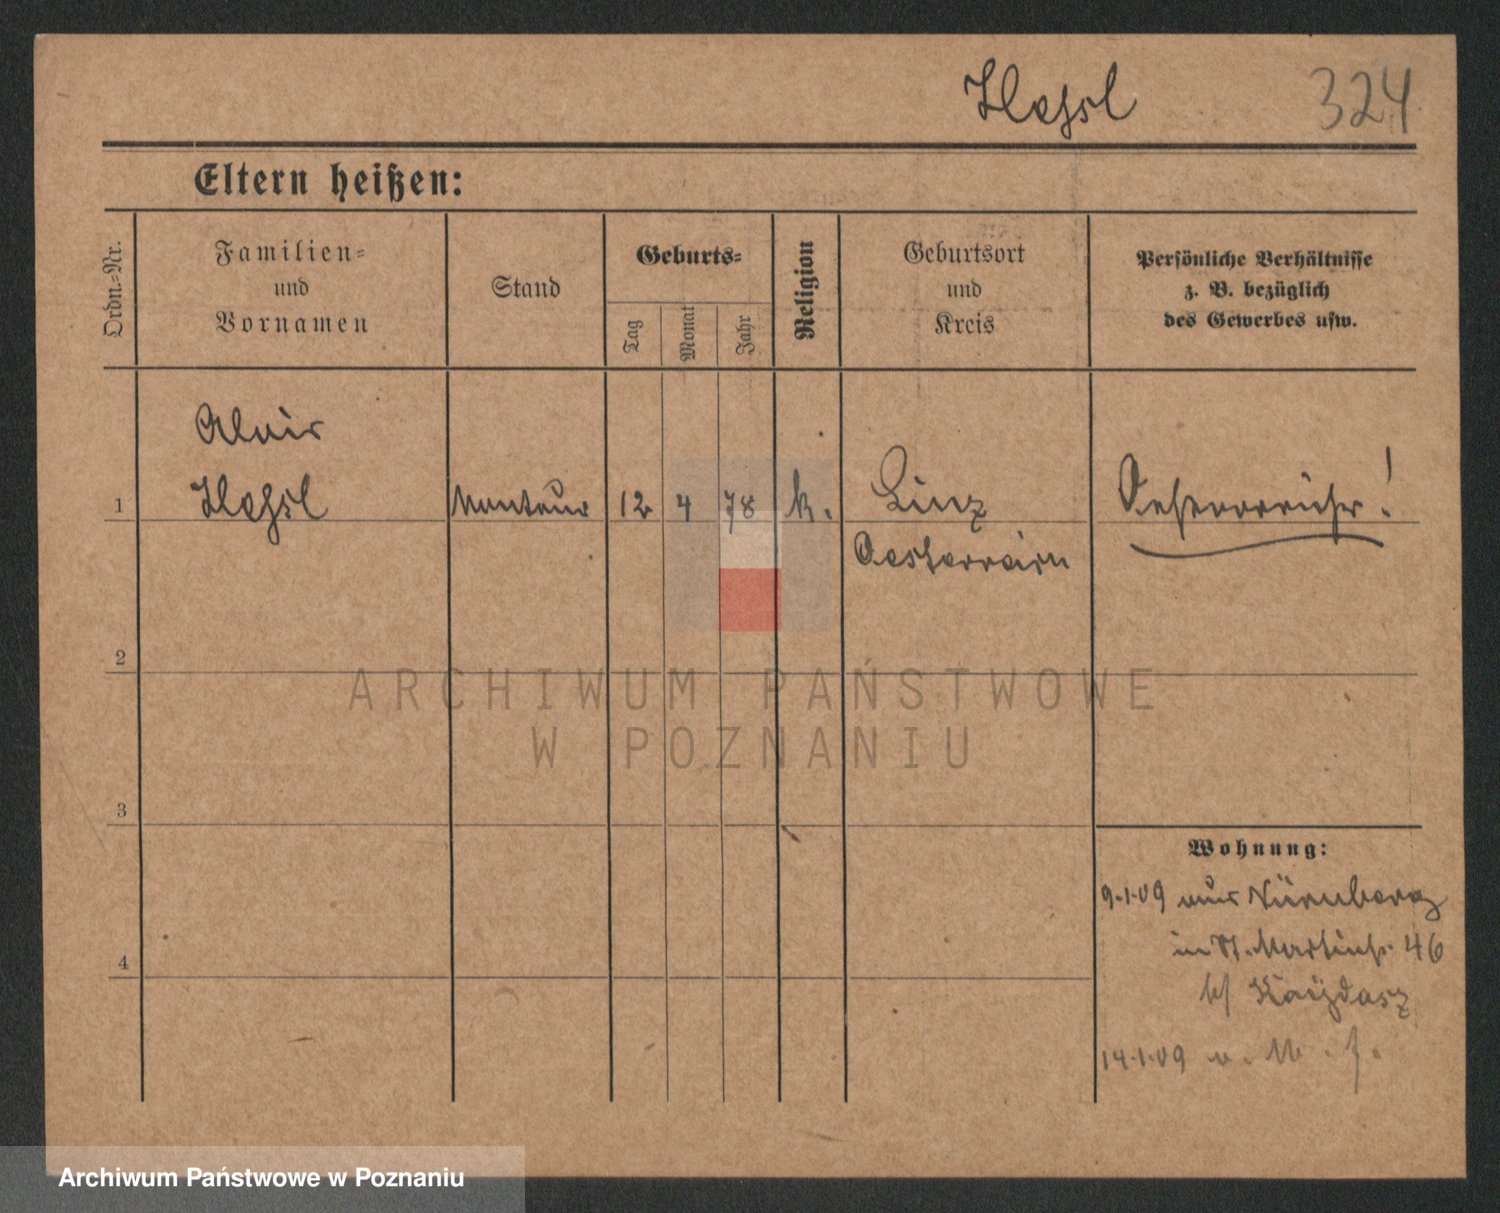 324
Eltern heißen:
Ordn.-Nr.
Familien-
und
Vornamen
Stand
Geburts-
Tag
Monat
Jahr
Religion
Geburtsort
und
Kreis
Persönliche Verhältnisse
z. B. bezüglich
des Gewerbes usw.
Alois
1 Monteur 12 4 78 k. Linz Oesterreicher!
Oesterreich
2
ARCHIWUM PAŃSTWOWE
W POZNANIU
3
Wohnung:
9.1.09 aus Nürnberg
in St. Martinstr. 46
b/ Kaÿdasz
4
14.1.09
Archiwum Państwowe w Poznaniu